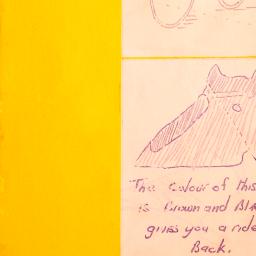 The Colour of this
is Brown and Bla
gives you a ride
Back.